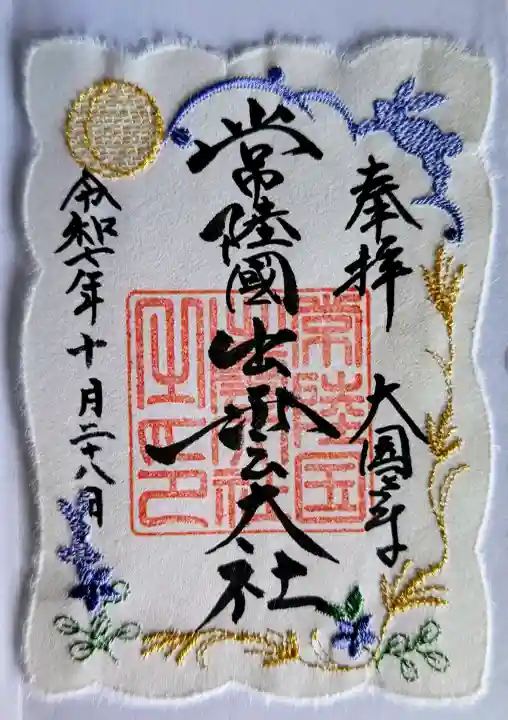 奉拝
常陸國出雲大社
令和七年十月二十八日
常陸国
出雲大社
之印